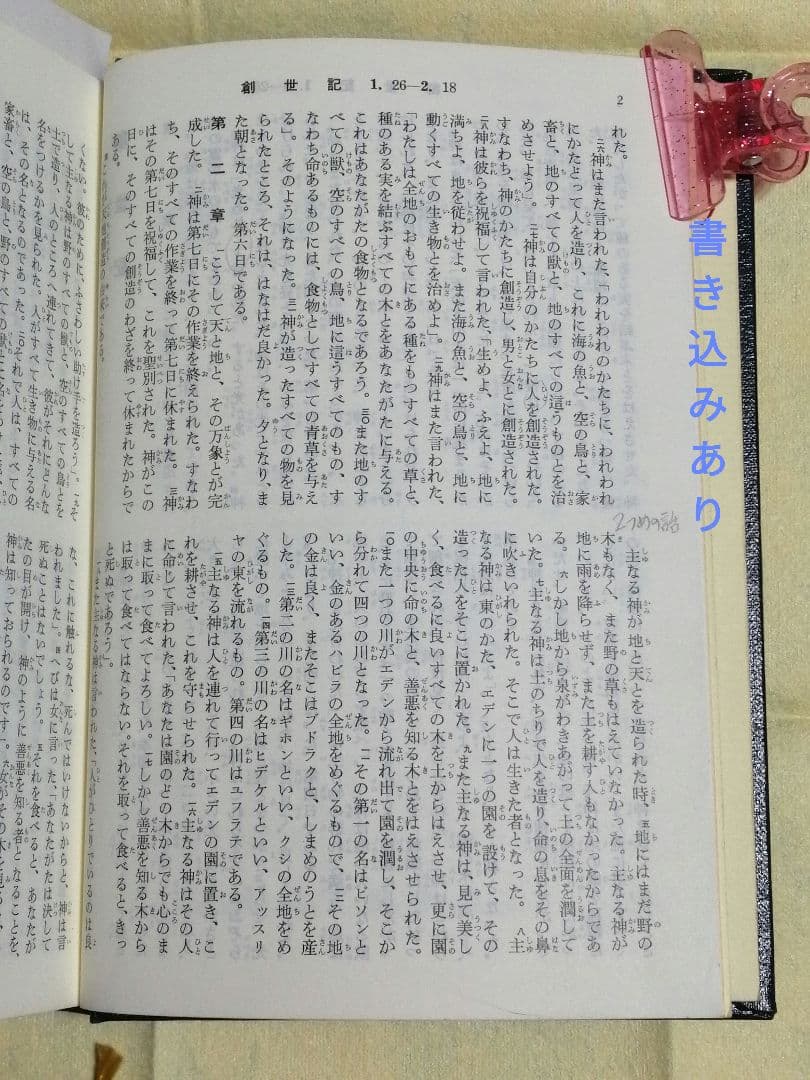 創世記 1. 26―2. 18
2
れた。
二六神はまた言われた、「われわれのかたちに、われわれ
にかたどって人を造り、これに海の魚と、空の鳥と、家
畜と、地のすべての獣と、地のすべての這うものとを治
めさせよう」。二七神は自分のかたちに人を創造された。
すなわち、神のかたちに創造し、男と女とに創造された。
二八神は彼らを祝福して言われた、「生めよ、ふえよ、地に
満ちよ、地を従わせよ。また海の魚と、空の鳥と、地に
動くすべての生き物とを治めよ」。二九神はまた言われた、
「わたしは全地のおもてにある種をもつすべての草と、
種のある実を結ぶすべての木とをあなたがたに与える。
これはあなたがたの食物となるであろう。三〇また地のす
べての獣、空のすべての鳥、地に這うすべてのもの、す
なわち命あるものには、食物としてすべての青草を与え
る」。そのようになった。三一神が造ったすべての物を見
られたところ、それは、はなはだ良かった。夕となり、ま
た朝となった。第六日である。
第二章 一こうして天と地と、その万象とが完
成した。二神は第七日にその作業を終えられた。すなわ
ち、そのすべての作業を終って第七日に休まれた。三神
はその第七日を祝福して、これを聖別された。神がこの
日に、そのすべての創造のわざを終って休まれたからで
ある。
2つめの話
主なる神が地と天とを造られた時、五地にはまだ野の
木もなく、また野の草もはえていなかった。主なる神が
地に雨を降らせず、また土を耕す人もなかったからであ
る。六しかし地から泉がわきあがって土の全面を潤して
いた。七主なる神は土のちりで人を造り、命の息をその鼻
に吹きいれられた。そこで人は生きた者となった。八主
なる神は東のかた、エデンに一つの園を設けて、その
造った人をそこに置かれた。九また主なる神は、見て美し
く、食べるに良いすべての木を土からはえさせ、更に園
の中央に命の木と、善悪を知る木とをはえさせられた。
一〇また一つの川がエデンから流れ出て園を潤し、そこか
ら分れて四つの川となった。一一その第一の名はピソンと
いい、金のあるハビラの全地をめぐるもので、一二その地
の金は良く、またそこはブドラクと、しまめのうとを産
した。一三第二の川の名はギホンといい、クシの全地をめ
ぐるもの。一四第三の川の名はヒデケルといい、アッスリ
ヤの東を流れるもの。第四の川はユフラテである。
一五主なる神は人を連れて行ってエデンの園に置き、こ
れを耕させ、これを守らせられた。一六主なる神はその人
に命じて言われた、「あなたは園のどの木からでも心のま
まに取って食べてよろしい。一七しかし善悪を知る木から
は取って食べてはならない。それを取って食べると、きっ
と死ぬであろう」。
書き込みあり
くない。彼のために、ふさわしい助け手を造ろう」。一九そ
して主なる神は野のすべての獣と、空のすべての鳥とを
土で造り、人のところへ連れてきて、彼がそれにどんな
名をつけるかを見られた。人がすべて生き物に与える名
は、その名となるのであった。二〇それで人は、すべての
な、これに触れるな、死んではいけないからと、神は言
われました」。四へびは女に言った、「あなたがたは決して
死ぬことはないでしょう。五それを食べると、あなたが
たの目が開け、神のように善悪を知る者となることを、
神は知っておられるのです」。